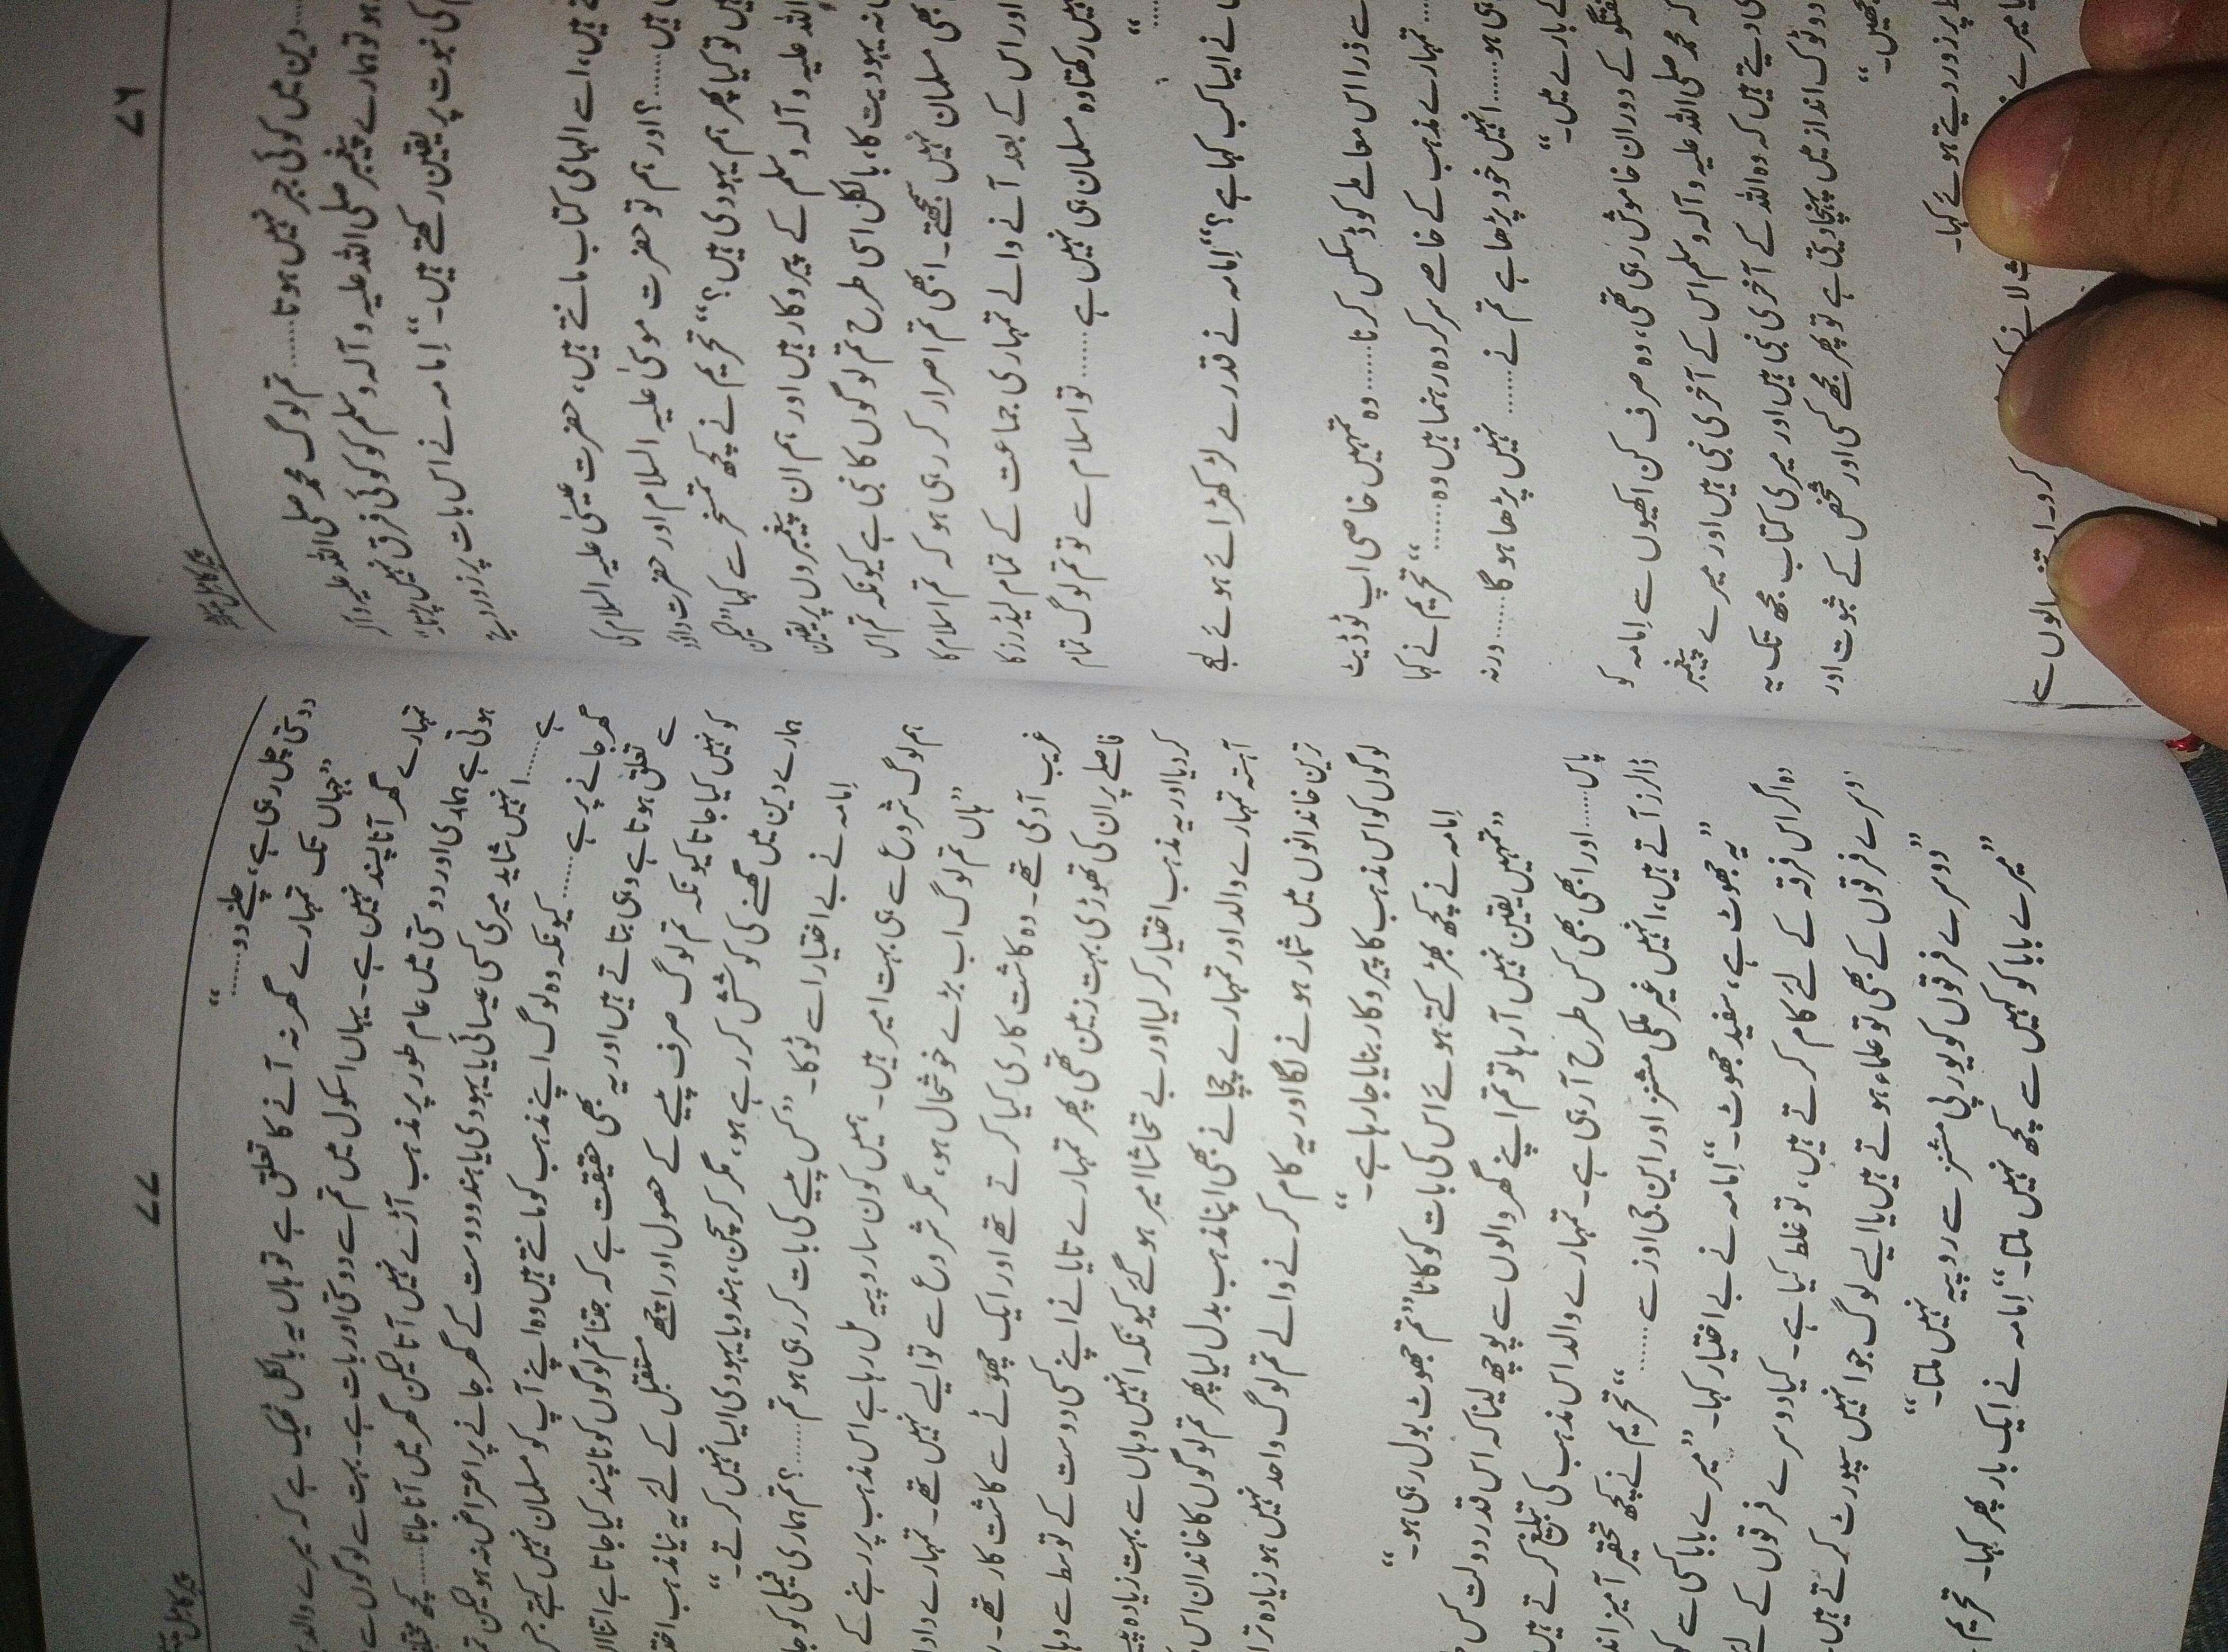 ۷۶
پیرِ کاملﷺ
دین میں کوئی جبر نہیں ہوتا...... تم لوگ محمد صلی اللہ علیہ وآلہ
ہو تو ہمارے پیغمبر صلی اللہ علیہ وآلہ وسلم کو کوئی فرق نہیں پڑتا“
کی نبوت پر یقین رکھتے ہیں۔“ اِمامہ نے اس بات پر زور دیتے
ہیں، اسے الہامی کتاب مانتے ہیں، حضرت عیسیٰ علیہ السلام کی
ہیں......؟ اور ہم تو حضرت موسیٰ علیہ السلام اور حضرت داؤد
ہیں تو کیا پھر ہم یہودی ہیں؟“ تحریم نے کچھ تمسخر سے کہا ”لیکن
اللہ علیہ وآلہ وسلم کے پیروکار ہیں اور ہم ان پیغمبروں پر یقین
نہ یہودیت کا، بالکل اسی طرح تم لوگوں کا نبی ہے کیونکہ تم اس
بھی مسلمان نہیں سمجھتے۔ ابھی تم اصرار کر رہی ہو کہ تم اسلام کا
اور اس کے بعد آنے والے تمہاری جماعت کے تمام لیڈرز کا
نہیں رکھتا وہ مسلمان ہی نہیں ہے...... تو اسلام سے تو تم لوگ تمام
“......
نے ایسا کب کہا ہے؟“ اِمامہ نے قدرے لڑکھڑائے ہوئے لہجے
سے ذرا اس معاملے کو ڈسکس کرنا...... وہ تمہیں خاصی اپ ٹو ڈیٹ
تمہارے مذہب کے خاصے سرکردہ رہنما ہیں وہ......“ تحریم نے کہا
ہی ہو...... انہیں خود پڑھا ہے تم نے...... نہیں پڑھا ہو گا...... ورنہ
کے بارے میں۔“
گفتگو کے دوران خاموش رہی تھی، وہ صرف کن اکھیوں سے اِمامہ کو
کہ محمد صلی اللہ علیہ وآلہ وسلم اس کے آخری نبی ہیں اور میرے پیغمبر
دیتے ہیں کہ وہ اللہ کے آخری نبی ہیں اور میری کتاب مجھ تک یہ
دوٹوک انداز میں پہنچا دیتی ہے تو پھر مجھے کسی اور شخص کے ثبوت اور
“
پر زور دیتے ہوئے کہا۔
میرے
لانے
۷۷
پیرِ کامل
دوستی چل رہی ہے، چلنے دو......“
”جہاں تک تمہارے گھر نہ آنے کا تعلق ہے تو ہاں یہ بالکل ٹھیک ہے کہ میرے والد
تمہارے گھر آنا پسند نہیں ہے۔ یہاں اسکول میں تم سے دوستی اور بات ہے۔ بہت سے لوگوں سے
ہوتی ہے ہماری اور دوستی میں عام طور پر مذہب آڑے نہیں آتا لیکن گھر میں آنا جانا...... کچھ
ہے...... انہیں شاید میری کسی عیسائی یا یہودی یا ہندو دوست کے گھر جانے پر اعتراض نہ ہو لیکن
گھر جانے پر ہے...... کیونکہ وہ لوگ اپنے مذہب کو مانتے ہیں وہ اپنے آپ کو مسلمان نہیں کہتے جس
سے تعلق ہوتا ہے وہی بتاتے ہیں اور یہ بھی حقیقت ہے کہ جتنا تم لوگوں کو ناپسند کیا جاتا ہے اتنا
کو نہیں کیا جاتا کیونکہ تم لوگ صرف پیسے کے حصول اور اچھے مستقبل کے لئے یہ نیا مذہب
ہمارے دین میں گھسنے کی کوشش کر رہے ہو، مگر کرسچن، ہندو یا یہودی ایسا نہیں کرتے۔“
اِمامہ نے بے اختیار اسے ٹوکا۔ ”کس پیسے کی بات کر رہی ہو تم......؟ تم ہماری فیملی کو
ہم لوگ شروع سے ہی بہت امیر ہیں۔ ہمیں کون سا روپیہ مل رہا ہے اس مذہب پر رہنے کے
”ہاں تم لوگ اب بڑے خوشحال ہو، مگر شروع سے تو ایسے نہیں تھے۔ تمہارے دادا
غریب آدمی تھے۔ وہ کاشت کاری کیا کرتے تھے اور ایک چھوٹے سے کاشت کار تھے۔
فاصلے پر ان کی تھوڑی بہت زمین تھی پھر تمہارے تایا نے اپنے کسی دوست کے توسط سے
کر دیا اور یہ مذہب اختیار کر لیا اور بے تحاشا امیر ہو گئے کیونکہ انہیں وہاں سے بہت زیادہ
آہستہ تمہارے والد اور تمہارے چچا نے بھی اپنا مذہب بدل لیا پھر تم لوگوں کا خاندان اس
ترین خاندانوں میں شمار ہونے لگا اور یہ کام کرنے والے تم لوگ واحد نہیں ہو زیادہ تر
لوگوں کو اس مذہب کا پیروکار بنایا جا رہا ہے۔“
اِمامہ نے کچھ بھڑکتے ہوئے اس کی بات کو کاٹا ”تم جھوٹ بول رہی ہو۔“
”تمہیں یقین نہیں آ رہا تو تم اپنے گھر والوں سے پوچھ لینا کہ اس قدر دولت کس
پاس...... اور ابھی بھی کس طرح آ رہی ہے۔ تمہارے والد اس مذہب کی تبلیغ کرتے ہیں
ڈالرز آتے ہیں، انہیں غیر ملکی مشنز اور این جی اوز سے......“ تحریم نے کچھ تحقیر آمیز
”یہ جھوٹ ہے، سفید جھوٹ۔“ اِمامہ نے بے اختیار کہا۔ ”میرے بابا کسی سے
وہ اگر اس فرقہ کے لئے کام کرتے ہیں، تو غلط کیا ہے۔ کیا دوسرے فرقوں کے لئے
دوسرے فرقوں کے بھی تو علماء ہوتے ہیں یا ایسے لوگ جو انہیں سپورٹ کرتے ہیں۔
”دوسرے فرقوں کو یورپی مشنز سے روپیہ نہیں ملتا۔“
”میرے بابا کو کہیں سے کچھ نہیں ملتا۔“ اِمامہ نے ایک بار پھر کہا۔ تحریم